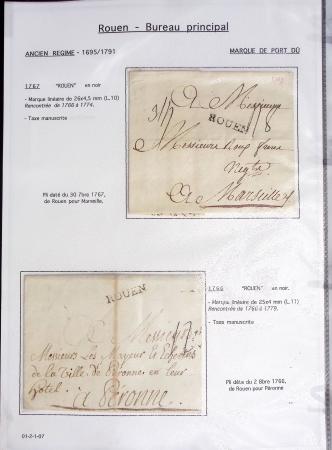 Rouen - Bureau principal
ANCIEN REGIME - 1695/1791
MARQUE DE PORT DÛ
1767 "ROUEN" en noir
- Marque linéaire de 26x4,5 mm (L.10)
Rencontrée de 1766 à 1774.
- Taxe manuscrite
Pli daté du 30 7bre 1767,
de Rouen pour Marseille.
A Messieurs
ROUEN
8
Messieurs
A Marseille
1766 "ROUEN" en noir.
- Marque linéaire de 25x4 mm (L.11)
Rencontrée de 1760 à 1779.
- Taxe manuscrite
Pli daté du 2 8bre 1766,
de Rouen pour Péronne
ROUEN
A Messieurs
Messieurs Les Mayeur &
de la Ville de Péronne en leur
hôtel.
à Péronne
01-2-1-07